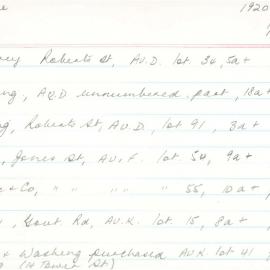 1920
Roberts St, Av. D. lot 34, 5a +
Av. D unnumbered part, 18a +
Roberts St, Av. D, lot 91, 3a +
Jones St, Av. F. lot 54, 9a +
& Co, " " " " 55, 10a +
Govt. Rd, Av. K. lot. 15, 8a +
+ Washing purchased Av. K lot 41
St)